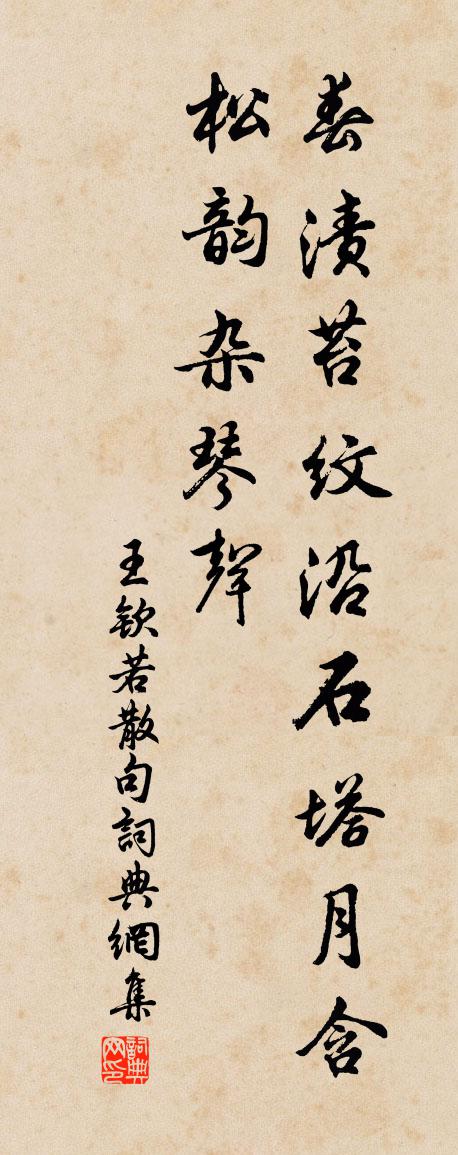 春漬苔紋沿石塔月含
松韵杂琴聲
王欽若散句詞典網集
詞典
网印